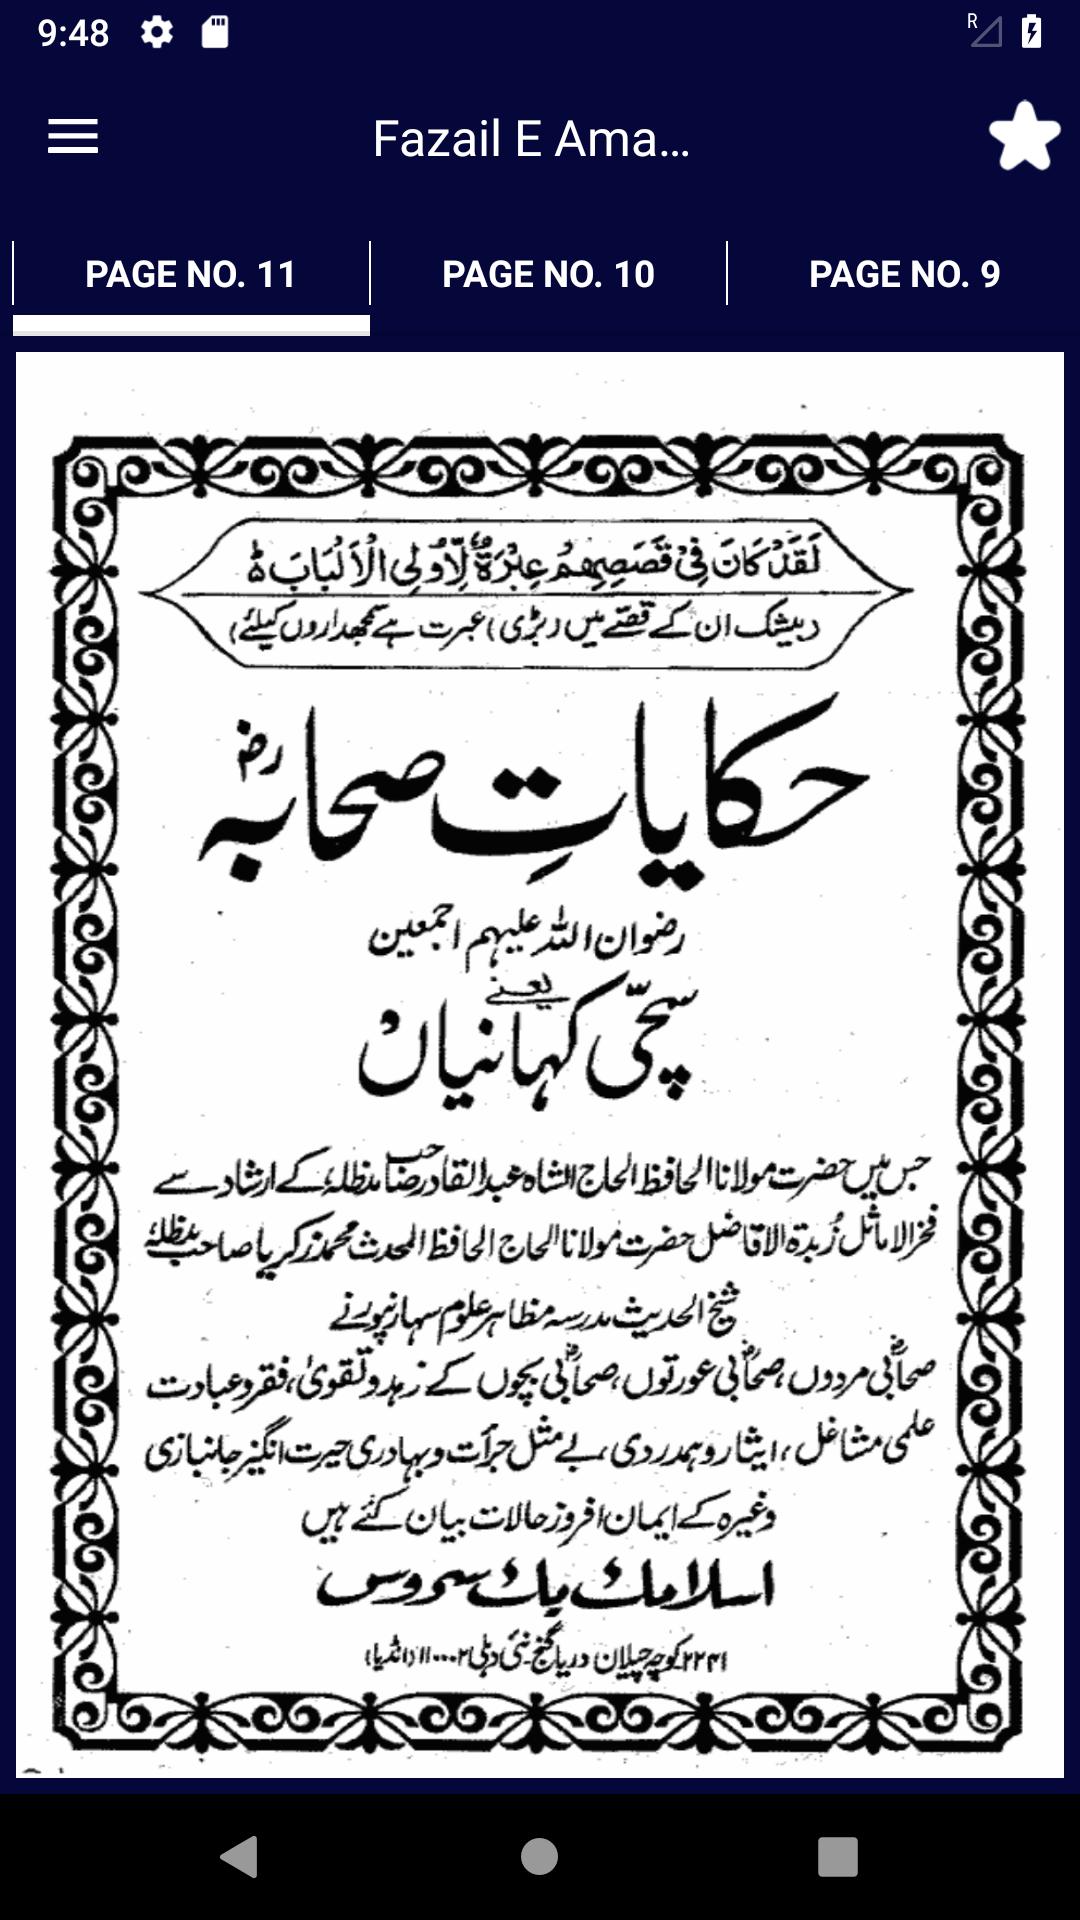 9:48
R
Fazail E Ama...
PAGE NO. 11
PAGE NO. 10
PAGE NO. 9
لَقَدْ كَانَ فِيْ قَصَصِهِمْ عِبْرَةٌ لِّاُولِى الْاَلْبَابِ ط
(بیشک ان کے قصّے میں (بڑی) عبرت ہے سمجھداروں کیلئے)
حکایاتِ صحابہ رض
رضوان اللہ علیہم اجمعین
یعنے
سچّی کہانیاں
جس میں حضرت مولانا الحافظ الحاج الشاہ عبدالقادر صاحب مدظلہٗ کے ارشاد سے
فخر الاماثل زُبدۃ الافاضل حضرت مولانا الحاج الحافظ المحدث محمد زکریا صاحب مدظلہٗ
شیخ الحدیث مدرسہ مظاہر علوم سہارنپور نے
صحابیؓ مردوں، صحابیؓ عورتوں، صحابیؓ بچوں کے زہد و تقویٰ، فقر و عبادت
علمی مشاغل، ایثار و ہمدردی، بے مثل جرأت و بہادری حیرت انگیز جانبازی
وغیرہ کے ایمان افروز حالات بیان کئے ہیں
اسلامک بک سروس
۲۲۴۱ کوچہ چیلان دریا گنج۔نئی دہلی ۱۱۰۰۰۲ (انڈیا)